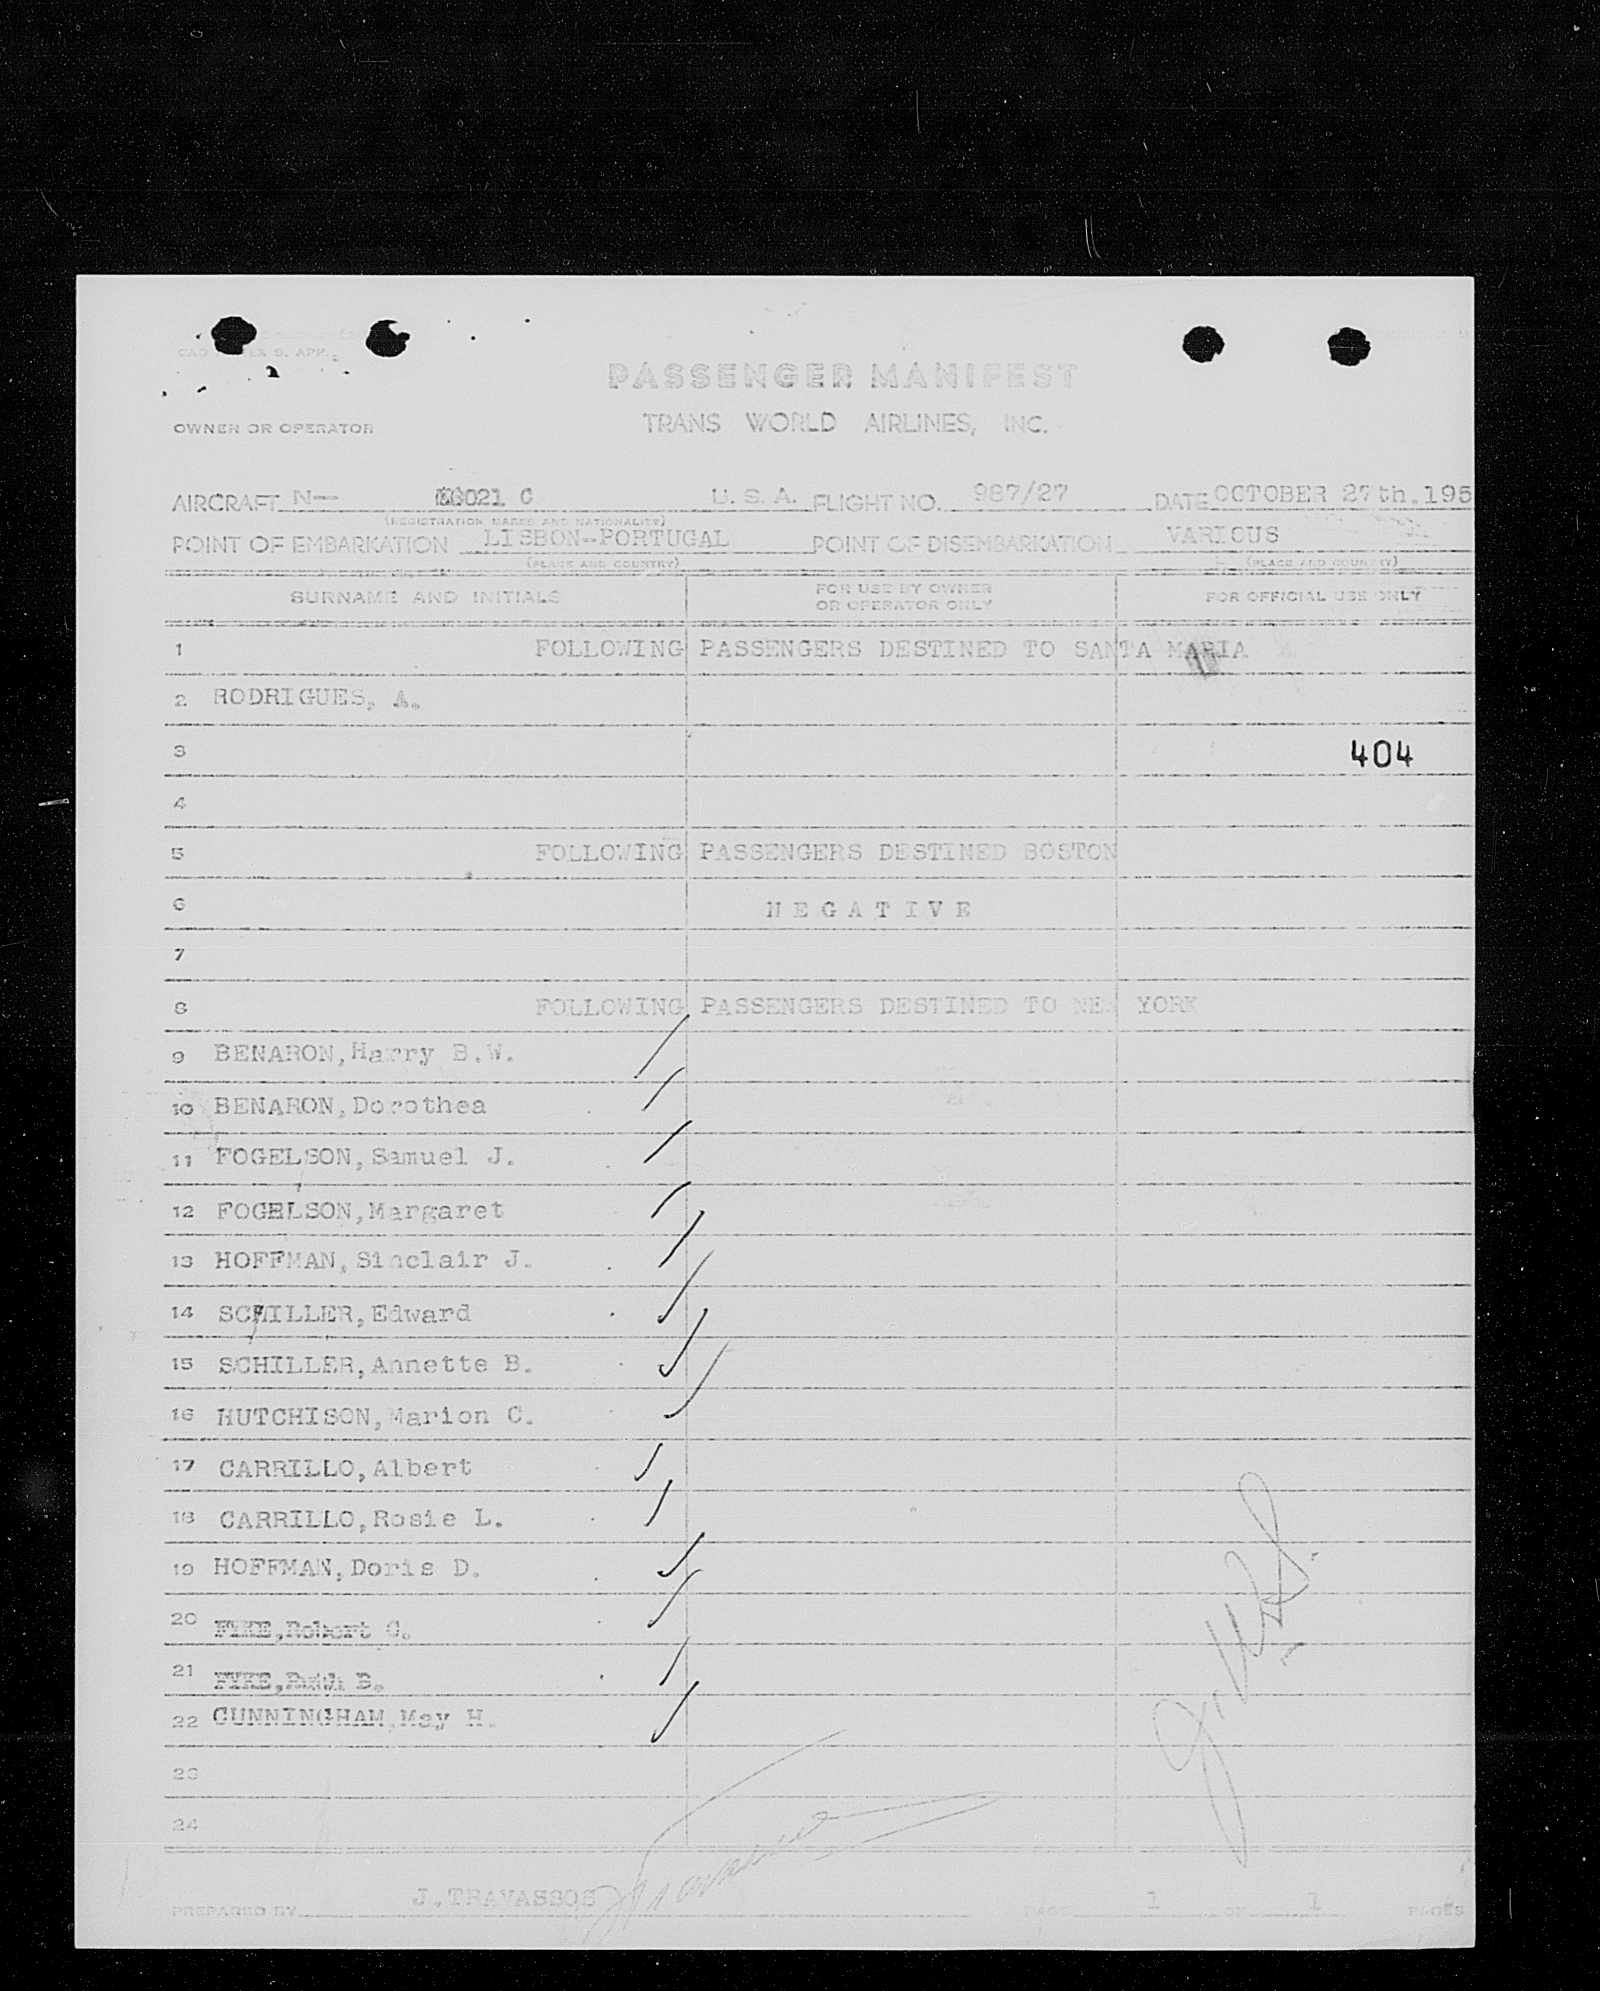 PASSENGER MANIFEST
OWNER OR OPERATOR TRANS WORLD AIRLINES, INC.
AIRCRAFT N— 6021 C U.S.A. FLIGHT NO. 987/27 DATE OCTOBER 27th.195
(REGISTRATION MARKS AND NATIONALITY)
POINT OF EMBARKATION LISBON--PORTUGAL POINT OF DISEMBARKATION VARIOUS
(PLACE AND COUNTRY) (PLACE AND COUNTRY)
SURNAME AND INITIALS FOR USE BY OWNER OR OPERATOR ONLY FOR OFFICIAL USE ONLY
1 FOLLOWING PASSENGERS DESTINED TO SANTA MARIA
2 RODRIGUES, A.
3 404
4
5 FOLLOWING PASSENGERS DESTINED BOSTON
6 N E G A T I V E
7
8 FOLLOWING PASSENGERS DESTINED TO NEW YORK
9 BENARON,Harry B.W.
10 BENARON,Dorothea
11 FOGELSON,Samuel J.
12 FOGELSON,Margaret
13 HOFFMAN,Sinclair J.
14 SCHILLER,Edward
15 SCHILLER,Annette B.
16 HUTCHISON,Marion C.
17 CARRILLO,Albert
18 CARRILLO,Rosie L.
19 HOFFMAN,Doris D.
20 FYKE,Robert C.
21 FYKE,Ruth B.
22 CUNNINGHAM,May H.
23
24
PREPARED BY J.TRAVASSOS PAGE 1 OF 1 PAGES